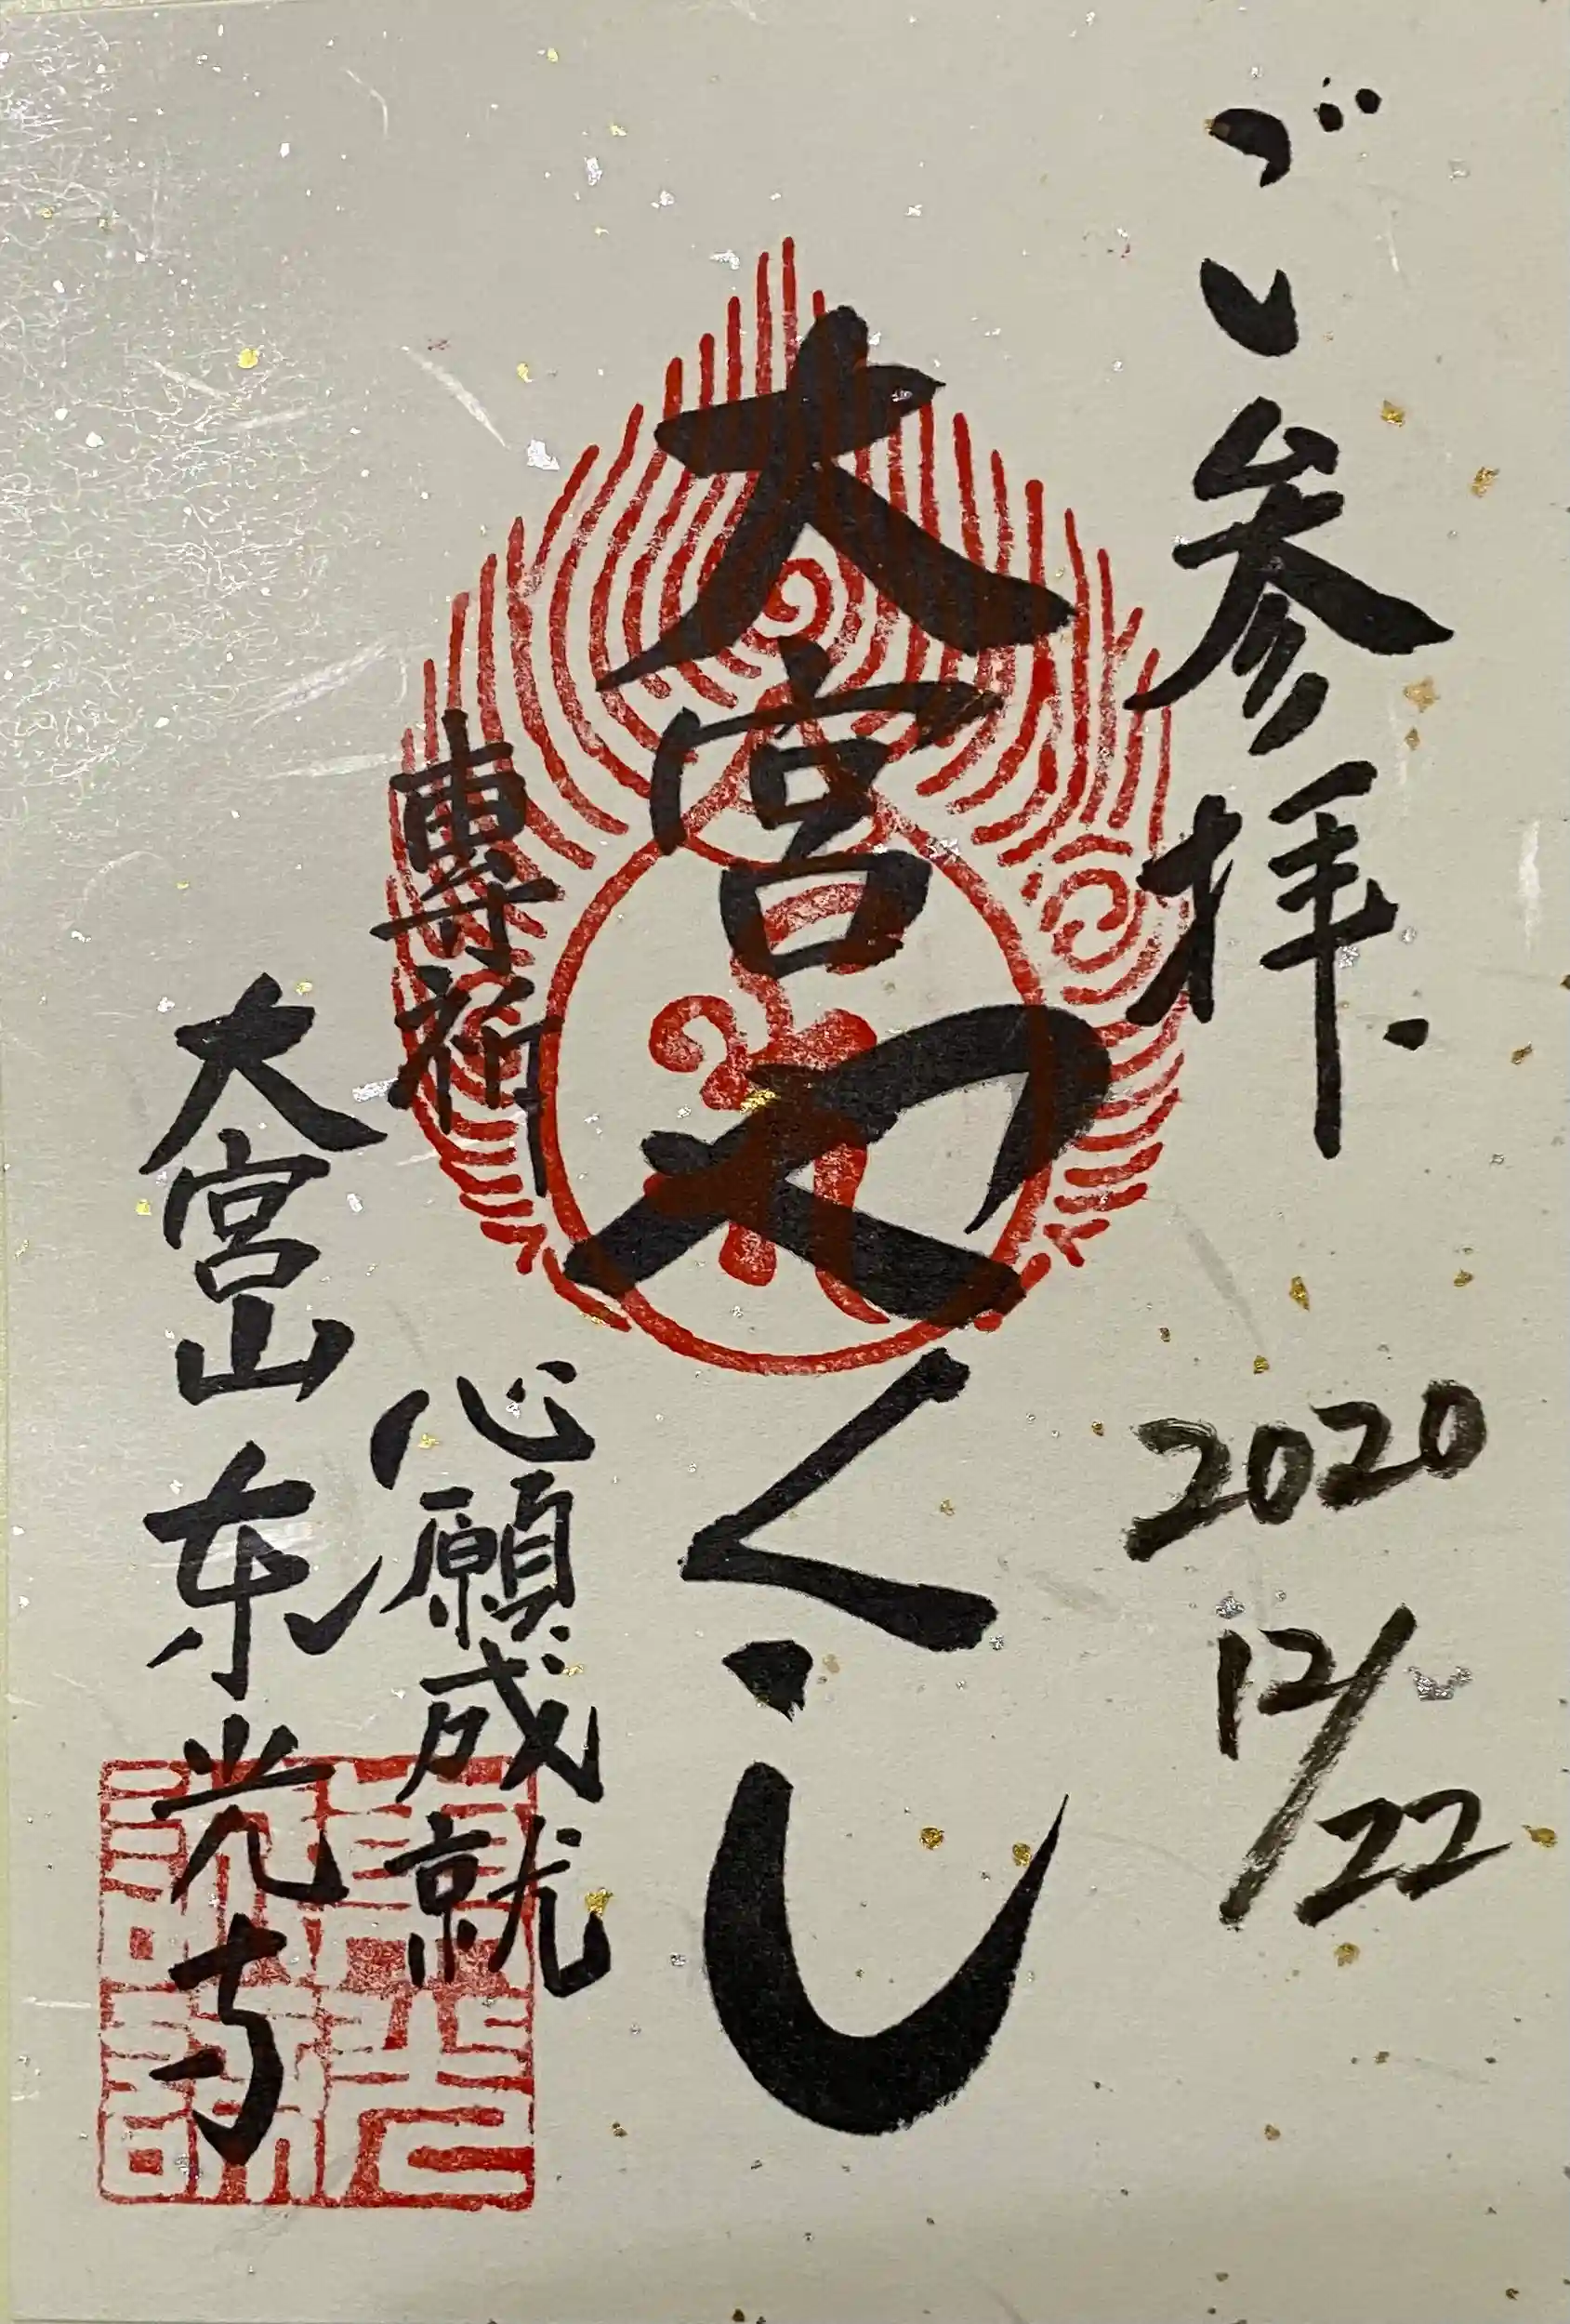 ご参拝
2020
12/22
大宮やくし
專祈
心願成就
大宮山
东光寺